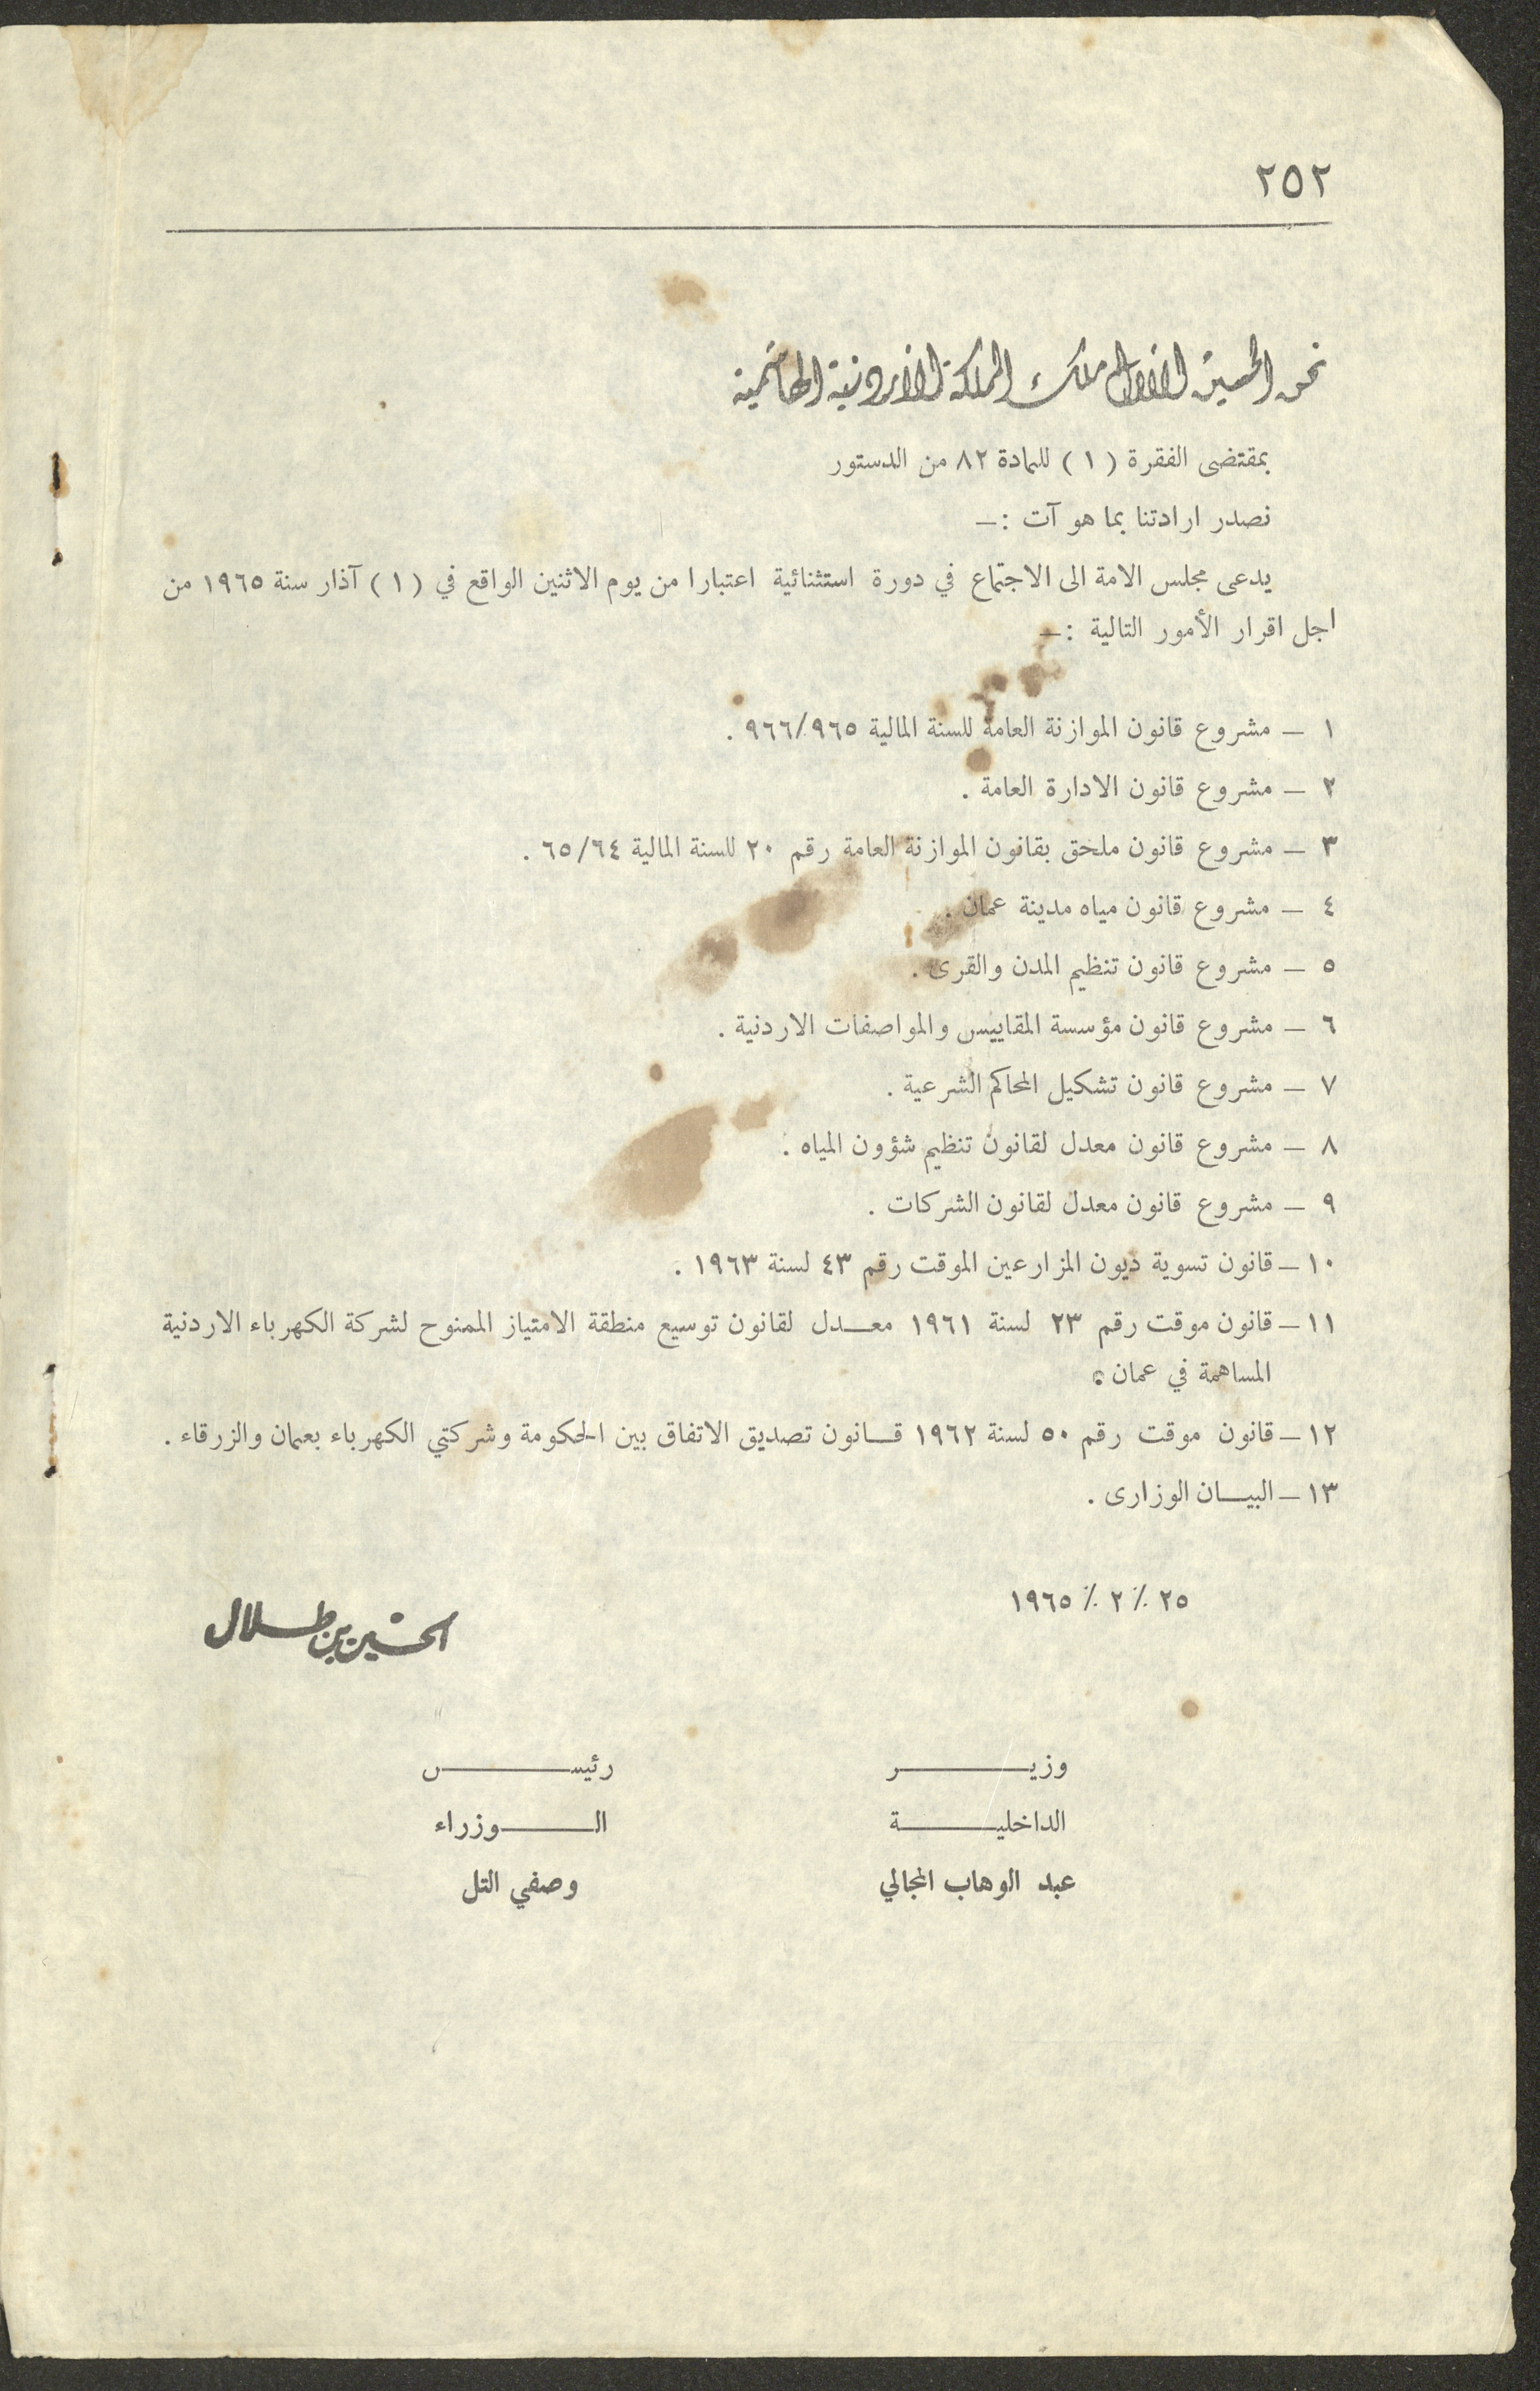 ٢٥٢
نحن الحسين الاول ملك المملكة الاردنية الهاشمية
بمقتضى الفقرة ( ١ ) للمادة ٨٢ من الدستور
نصدر ارادتنا بما هو آت :ــ
يدعى مجلس الامة الى الاجتماع في دورة استثنائية اعتبارا من يوم الاثنين الواقع في ( ١ ) آذار سنة ١٩٦٥ من
اجل اقرار الأمور التالية :ــ
١ ــ مشروع قانون الموازنة العامة للسنة المالية ٩٦٦/٩٦٥ .
٢ ــ مشروع قانون الادارة العامة .
٣ ــ مشروع قانون ملحق بقانون الموازنة العامة رقم ٢٠ للسنة المالية ٦٥/٦٤ .
٤ ــ مشروع قانون مياه مدينة عمان .
٥ ــ مشروع قانون تنظيم المدن والقرى .
٦ ــ مشروع قانون مؤسسة المقاييس والمواصفات الاردنية .
٧ ــ مشروع قانون تشكيل المحاكم الشرعية .
٨ ــ مشروع قانون معدل لقانون تنظيم شؤون المياه .
٩ ــ مشروع قانون معدل لقانون الشركات .
١٠ ــ قانون تسوية ديون المزارعين الموقت رقم ٤٣ لسنة ١٩٦٣ .
١١ ــ قانون موقت رقم ٢٣ لسنة ١٩٦١ معـــدل لقانون توسيع منطقة الامتياز الممنوح لشركة الكهرباء الاردنية
المساهمة في عمان .
١٢ ــ قانون موقت رقم ٥٠ لسنة ١٩٦٢ قـــانون تصديق الاتفاق بين الحكومة وشركتي الكهرباء بعمان والزرقاء .
١٣ ــ البيـــان الوزارى .
٢٥ ٪ ٢ ٪ ١٩٦٥
الحسين بن طلال
وزيـــــــر رئيـــــــس
الداخليـــــــة الـــــــوزراء
عبد الوهاب المجالي وصفي التل